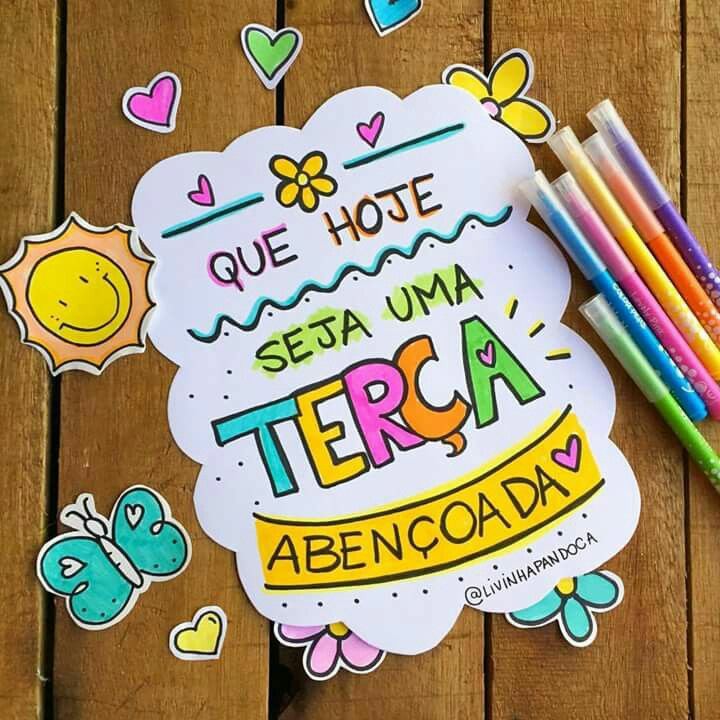 QUE HOJE
SEJA UMA
TERÇA
ABENÇOADA
@LIVINHAPANDOCA